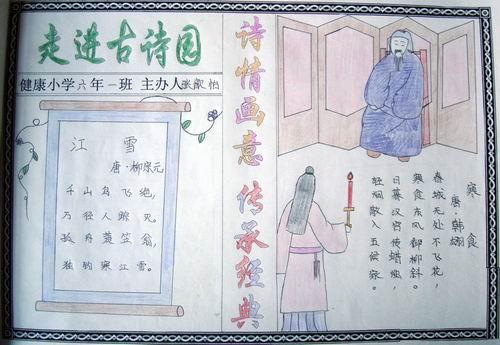 走进古诗园
健康小学六年一班 主办人
江雪
唐·柳宗元
千山鸟飞绝,
万径人踪灭。
孤舟蓑笠翁,
独钓寒江雪。
诗情画意 传承经典
寒食
唐·韩翃
春城无处不飞花,
寒食东风御柳斜。
日暮汉宫传蜡烛,
轻烟散入五侯家。